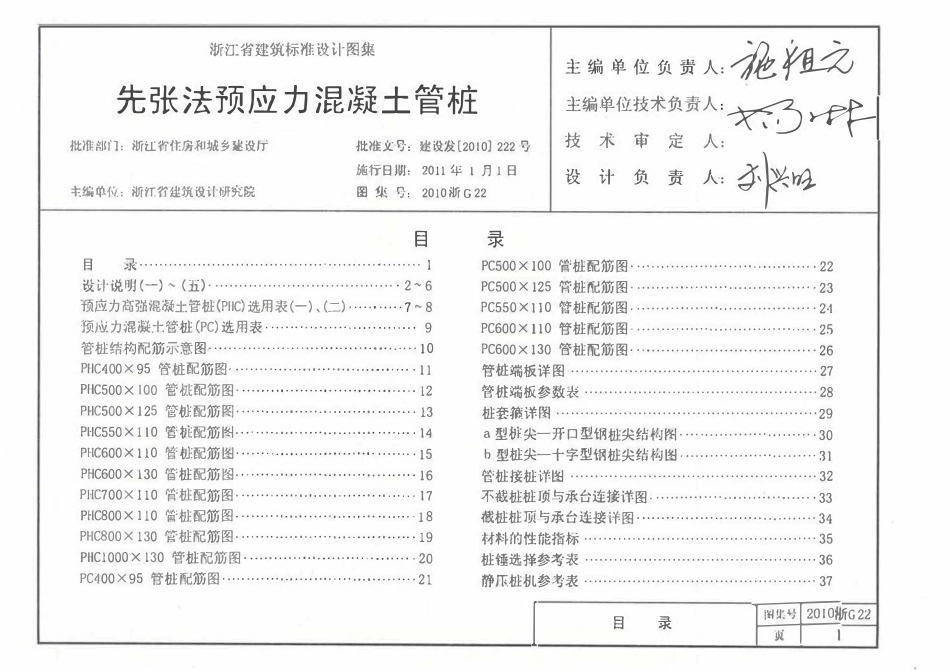 浙江省建筑标准设计图集
先张法预应力混凝土管桩
批准部门：浙江省住房和城乡建设厅
批准文号：建设发[2010]222号
施行日期：2011年1月1日
主编单位：浙江省建筑设计研究院
图集号：2010浙G22
主编单位负责人：施祖元
主编单位技术负责人：
技术审定人：
设计负责人：刘兴旺
目 录
目 录 1
设计说明(一)~(五) 2~6
预应力高强混凝土管桩(PHC)选用表(一)、(二) 7~8
预应力混凝土管桩(PC)选用表 9
管桩结构配筋示意图 10
PHC400×95 管桩配筋图 11
PHC500×100 管桩配筋图 12
PHC500×125 管桩配筋图 13
PHC550×110 管桩配筋图 14
PHC600×110 管桩配筋图 15
PHC600×130 管桩配筋图 16
PHC700×110 管桩配筋图 17
PHC800×110 管桩配筋图 18
PHC800×130 管桩配筋图 19
PHC1000×130 管桩配筋图 20
PC400×95 管桩配筋图 21
PC500×100 管桩配筋图 22
PC500×125 管桩配筋图 23
PC550×110 管桩配筋图 24
PC600×110 管桩配筋图 25
PC600×130 管桩配筋图 26
管桩端板详图 27
管桩端板参数表 28
桩套箍详图 29
a型桩尖—开口型钢桩尖结构图 30
b型桩尖—十字型钢桩尖结构图 31
管桩接桩详图 32
不截桩桩顶与承台连接详图 33
截桩桩顶与承台连接详图 34
材料的性能指标 35
桩锤选择参考表 36
静压桩机参考表 37
目 录
图集号 2010浙G22
页 1